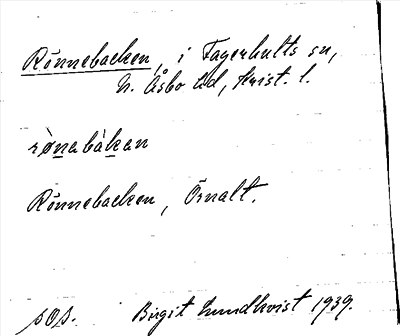 Rönnebacken, i Fagerhults sn,
N. Åsbo hd, Krist. l.
rǿnabàkan
Rönnebacken, Örnalt.
SOS. Birgit Lundkvist 1939.